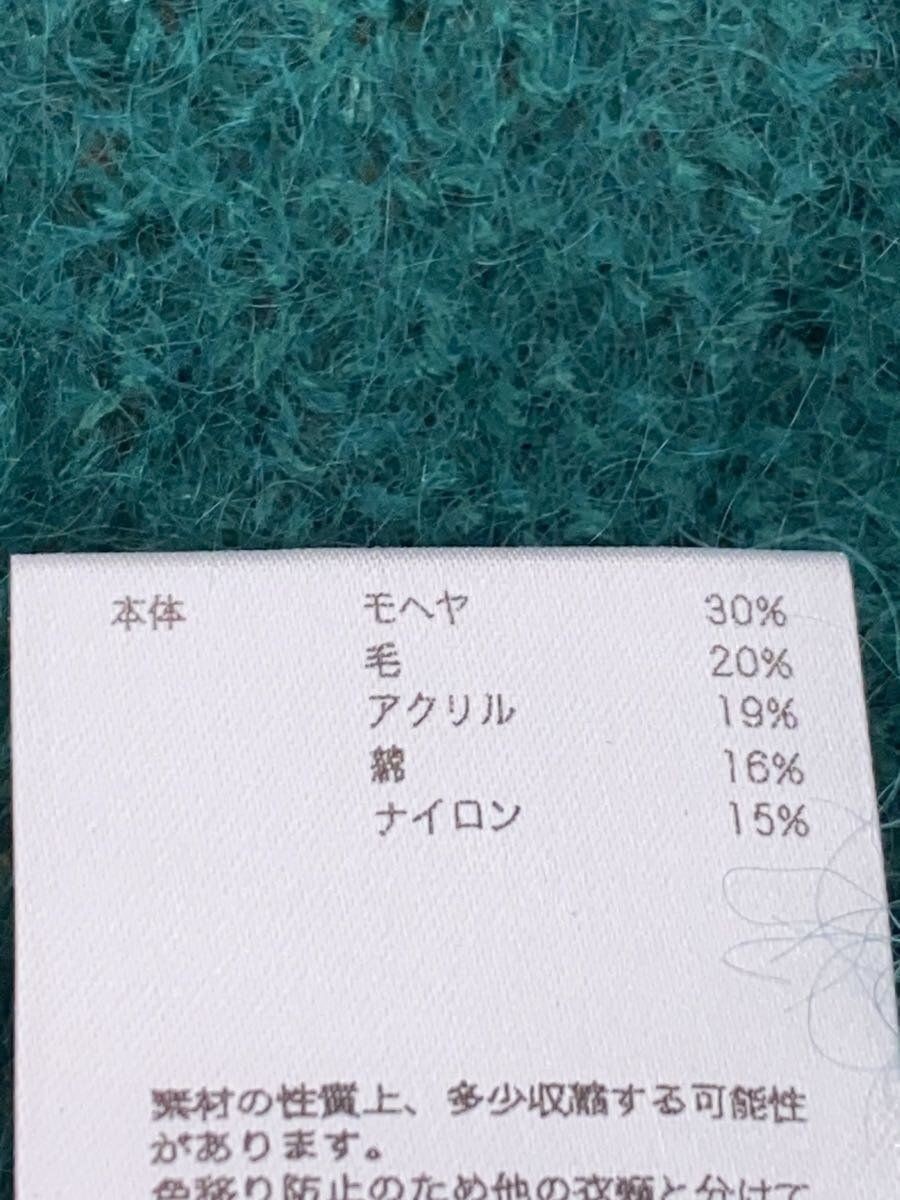 本体 モヘヤ 30%
毛 20%
アクリル 19%
綿 16%
ナイロン 15%
素材の性質上、多少収縮する可能性
があります。
色移り防止のため他の衣類と分けて